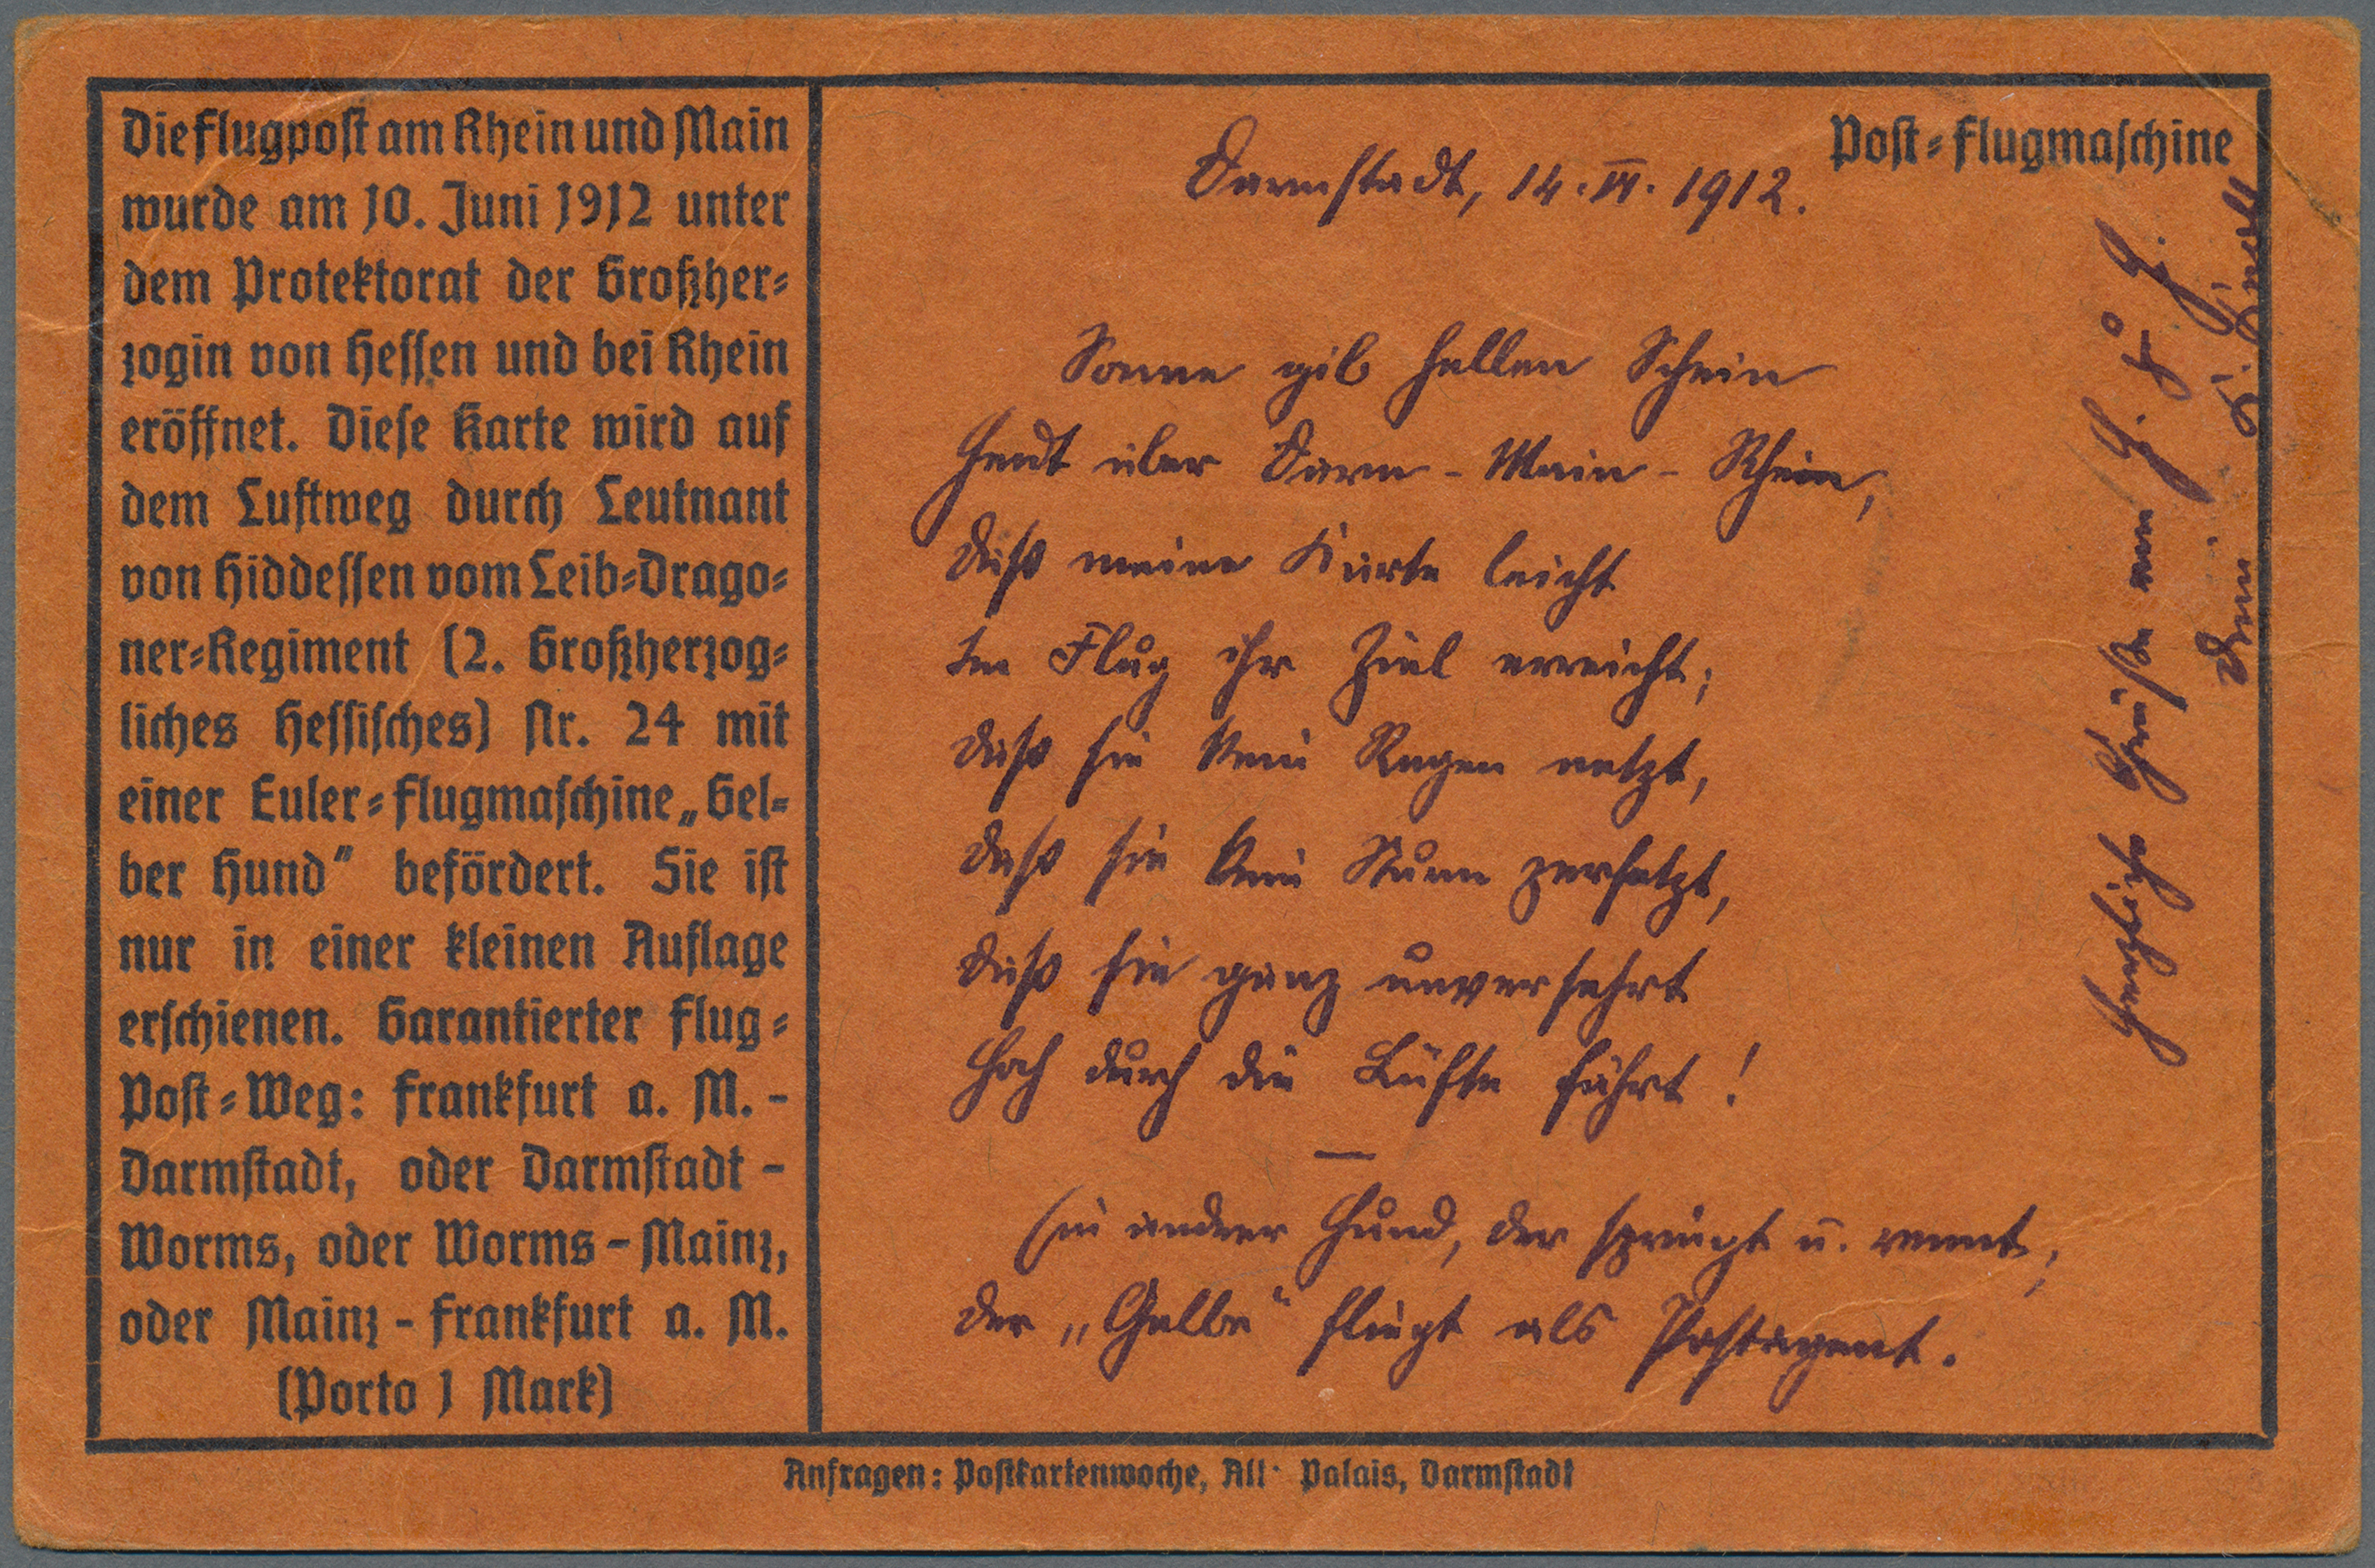 Die Flugpost am Rhein und Main
wurde am 10. Juni 1912 unter
dem Protektorat der Großher=
zogin von Hessen und bei Rhein
eröffnet. Diese Karte wird auf
dem Luftweg durch Leutnant
von Hiddessen vom Leib=Drago=
ner=Regiment (2. Großherzog=
liches Hessisches) Nr. 24 mit
einer Euler=Flugmaschine „Gel=
ber Hund" befördert. Sie ist
nur in einer kleinen Auflage
erschienen. Garantierter Flug=
Post=Weg: Frankfurt a. M. -
Darmstadt, oder Darmstadt -
Worms, oder Worms - Mainz,
oder Mainz - Frankfurt a. M.
(Porto 1 Mark)
Post=Flugmaschine
Darmstadt, 14. VI. 1912.
Sonne gib hellen Schein
Heut über Darm - Main - Rhein,
Daß meine Karte leicht
Im Flug ihr Ziel erreicht;
Daß sie kein Regen netzt,
Daß sie kein Sturm zerfetzt,
Daß sie ganz unversehrt
Hoch durch die Lüfte fährt!
Ein andrer Hund, der springt u. rennt;
Der „Gelbe" fliegt als Postagent.
Herzliche Grüße von
Dein
Anfragen: Postkartenwoche, Alt. Palais, Darmstadt